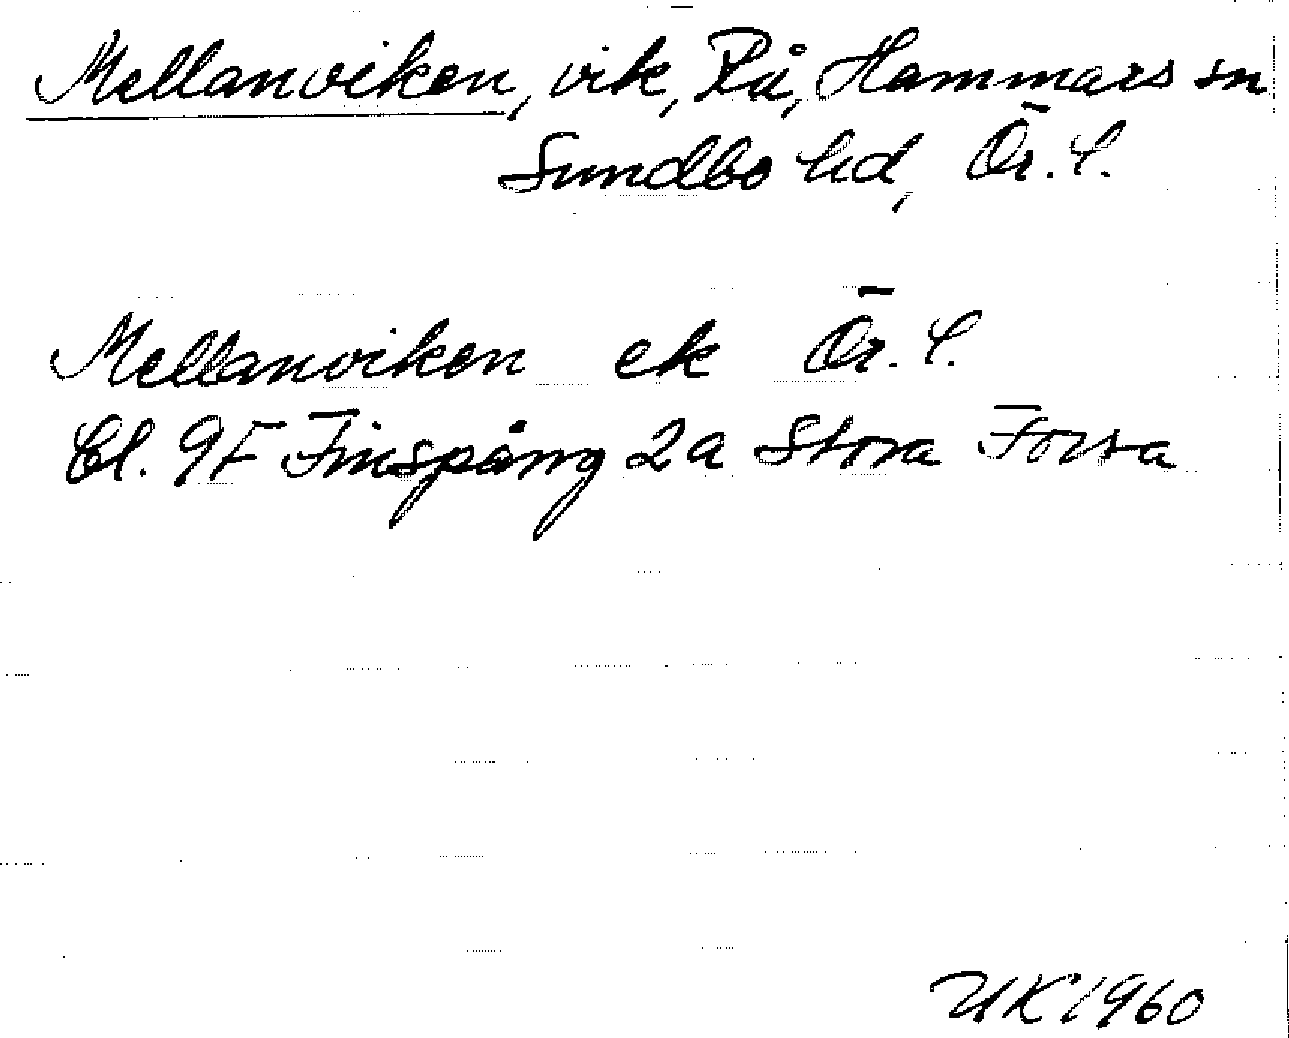 Mellanviken, vik, Rå, Hammars sn
Sundbo hd, Ör. l.
Mellanviken ek Ör. l.
Bl. 9F Finspång 2a Stora Forsa
UK 1960